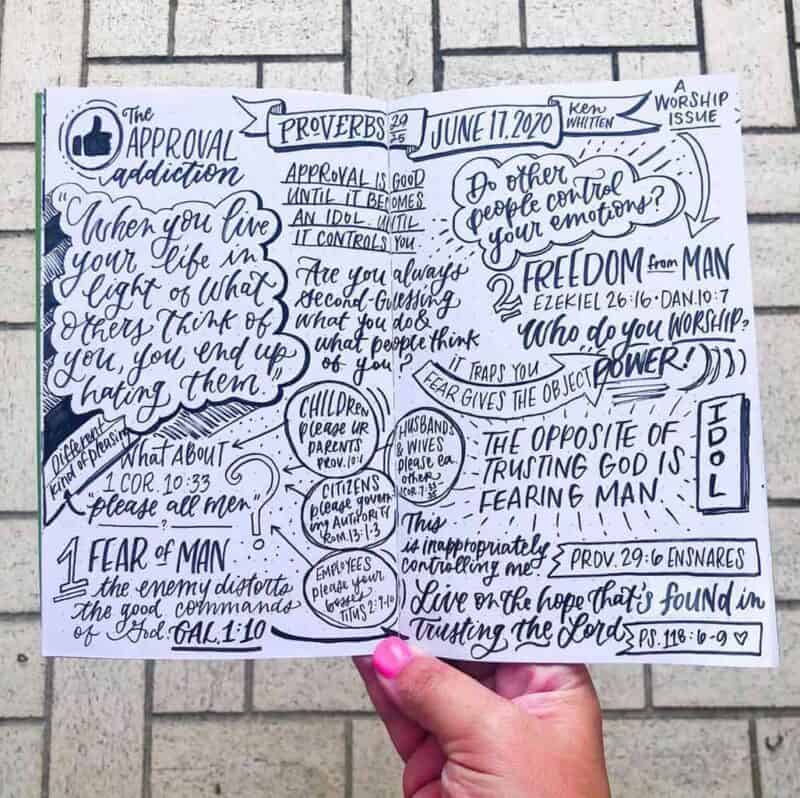 The
APPROVAL
addiction
PROVERBS 29
25
JUNE 17, 2020
Ken
WHITTEN
A
WORSHIP
ISSUE
"When you live
your life in
light of what
others think of
you, you end up
hating them."
APPROVAL IS GOOD
UNTIL IT BECOMES
AN IDOL. UNTIL
IT CONTROLS YOU.
Are you always
second-Guessing
what you do &
what people think
of you?
Do other
people control
your emotions?
2 FREEDOM from MAN
EZEKIEL 26:16 · DAN. 10:7
Who do you WORSHIP?
IT TRAPS YOU
FEAR GIVES THE OBJECT POWER!
THE OPPOSITE OF
TRUSTING GOD IS
FEARING MAN.
IDOL
Different
kind of pleasing
What ABOUT
1 COR. 10:33
"please all men"
?
?
CHILDREN
please UR
PARENTS
PROV. 10:1
HUSBANDS
& WIVES
please ea.
other
CITIZENS
please govern
my AUTHORITY
ROM. 13:1-3
EMPLOYEES
please your
bosses
TITUS 2:9-10
1 FEAR of MAN
the enemy distorts
the good commands
of God. GAL. 1:10
This
is inappropriately
controlling me!
PROV. 29:6 ENSNARES
Live on the hope that's found in
Trusting the Lord
PS. 118:6-9 ♡